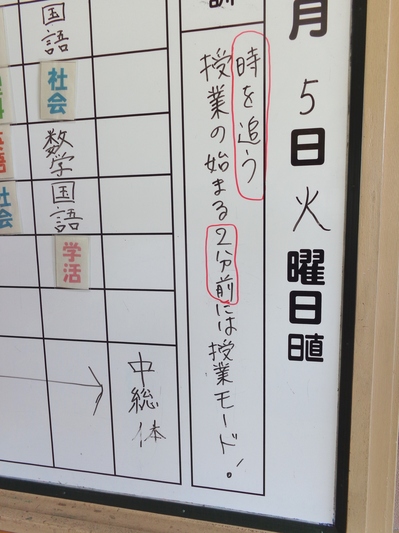 月5日火曜日
日直
訓
時を追う
授業の始まる2分前には授業モード!
中総体
国語
社会
数学
国語
学活
社会